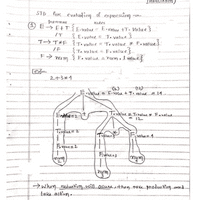 SDT for evaluation of expression :-
E → E+T { E.value = E.value + T.value }
/T { E.value = T.value }
T → T*F { T.value = T.value * F.value }
/F { T.value = F.value }
F → num { F.value = num.value }
2+3*4
E.value = E.value + T.value = 14
E.value=2
T.value = T.value * F.value
= 12
T.value=2
T.value=3
F.value=4
F.value=2
F.value=3
num
num
num
→ When reduction will occur, then see production and
take action.